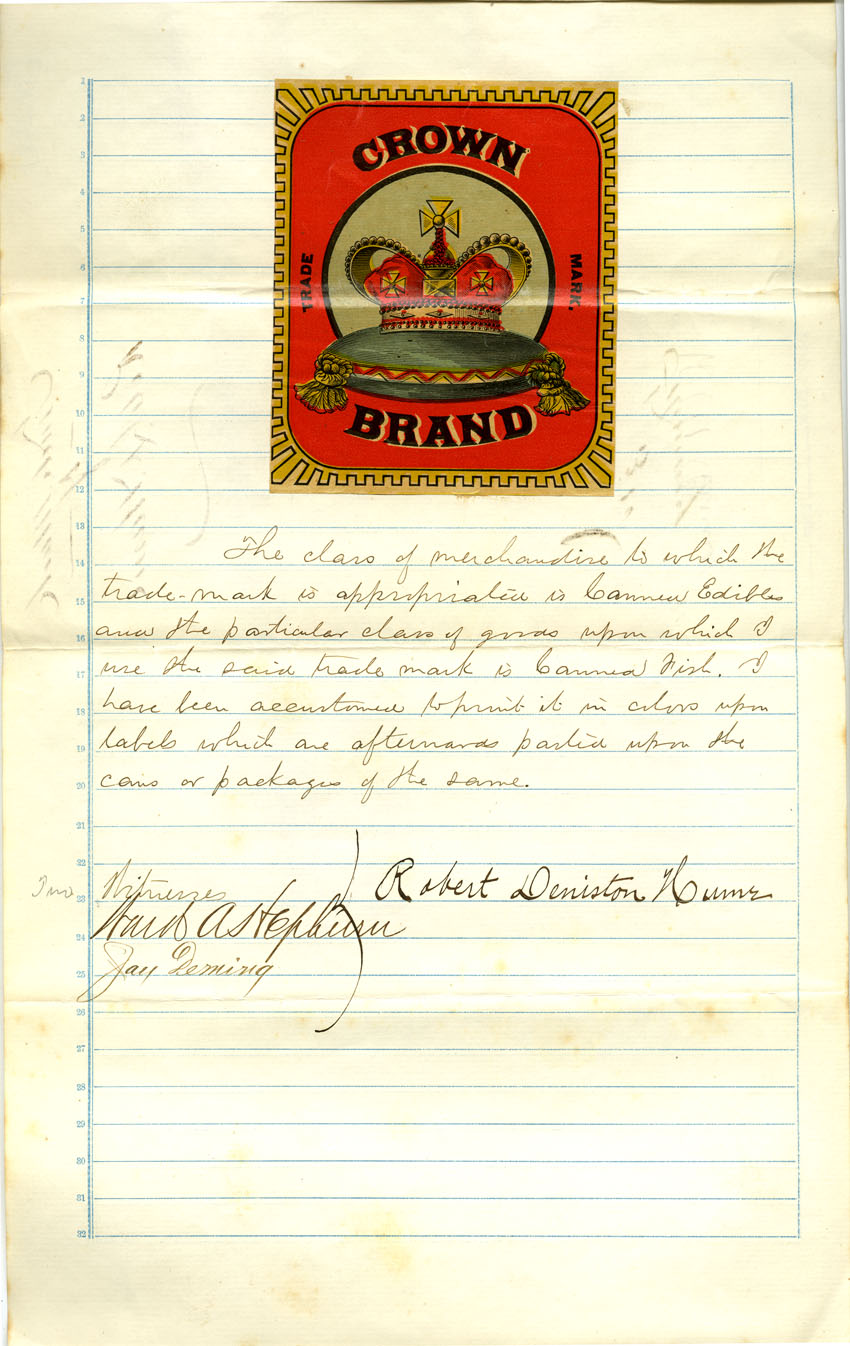 CROWN
TRADE MARK.
BRAND
1
2
3
4
5
6
7
8
9
10
11
12
13
14
15
16
17
18
19
20
21
22
23
24
25
26
27
28
29
30
31
32
The class of merchandise to which the
trade-mark is appropriated is Canned Edibles
and the particular class of goods upon which I
use the said trade mark is Canned Fish. I
have been accustomed to print it in colors upon
labels which are afterwards pasted upon the
cans or packages of the same.
Witnesses
Robert Deniston Hume
Jay Deming